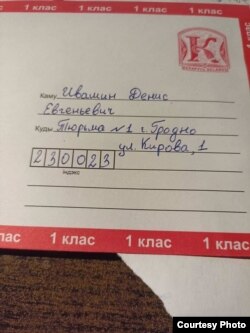 1 клас 1 клас
Каму Ивашин Денис
Евгеньевич
Куды Тюрьма №1 г. Гродно
ул. Кирова, 1
230023
індэкс
1 клас 1 клас 1 клас 1 клас
Courtesy Photo